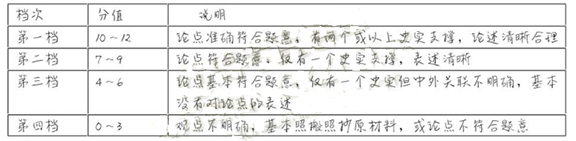 档次 分值 说明
第一档 10～12 论点准确符合题意，有两个或以上史实支撑，论述清晰合理
第二档 7～9 论点符合题意，仅有一个史实支撑，表述清晰
第三档 4～6 论点基本符合题意，仅有一个史实但中外关联不明确，基本
没有对论点的表述
第四档 0～3 观点不明确，基本照搬照抄原材料，或论点不符合题意